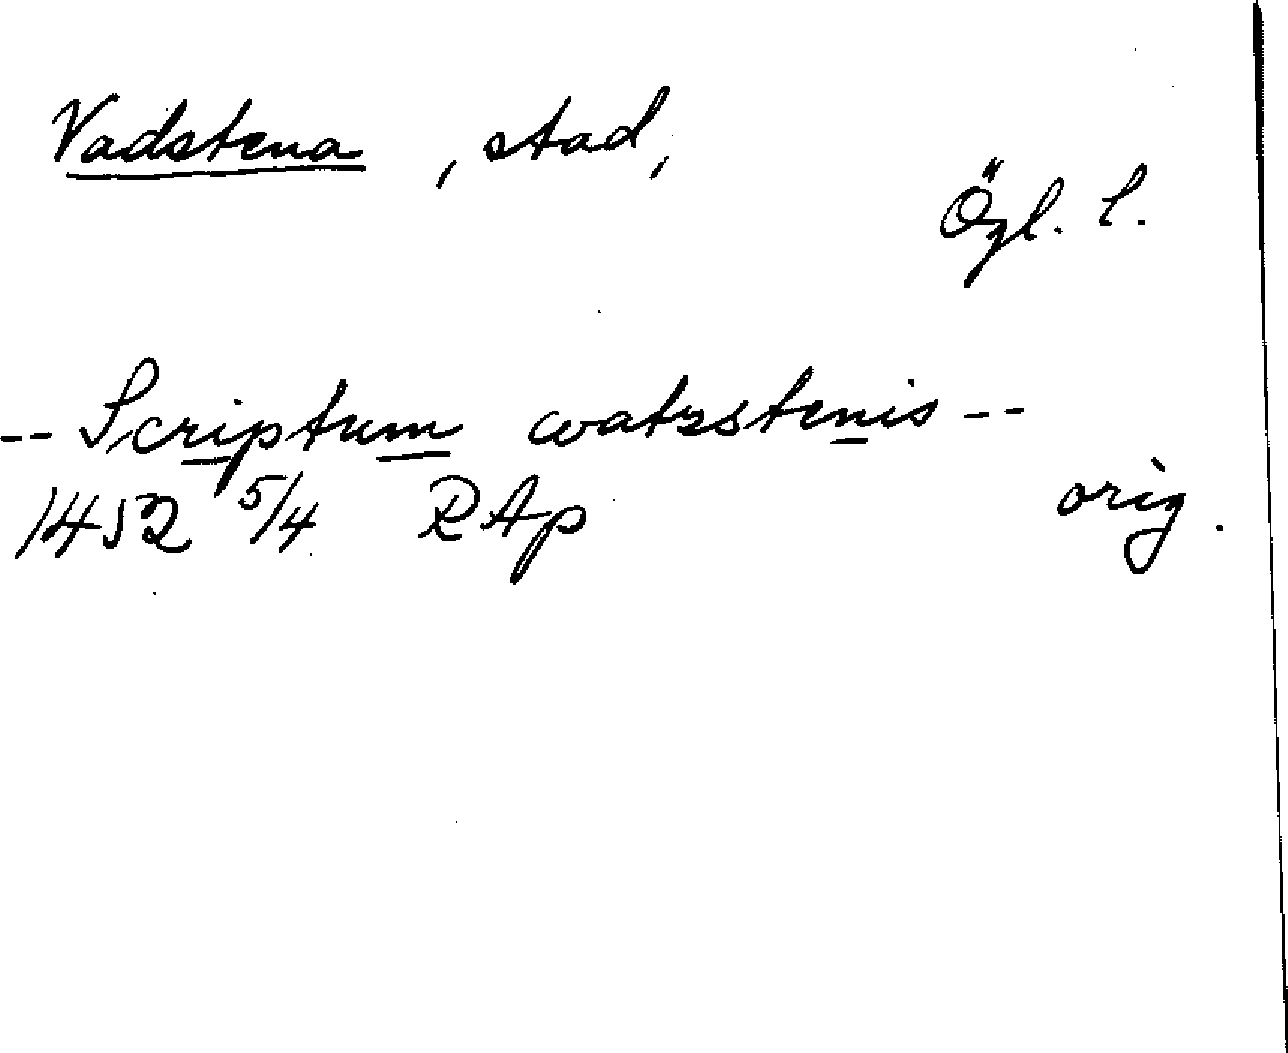 Vadstena, stad,
Ögl. l.
-- Scriptum watzstenis --
1452 5/4 RAp orig.